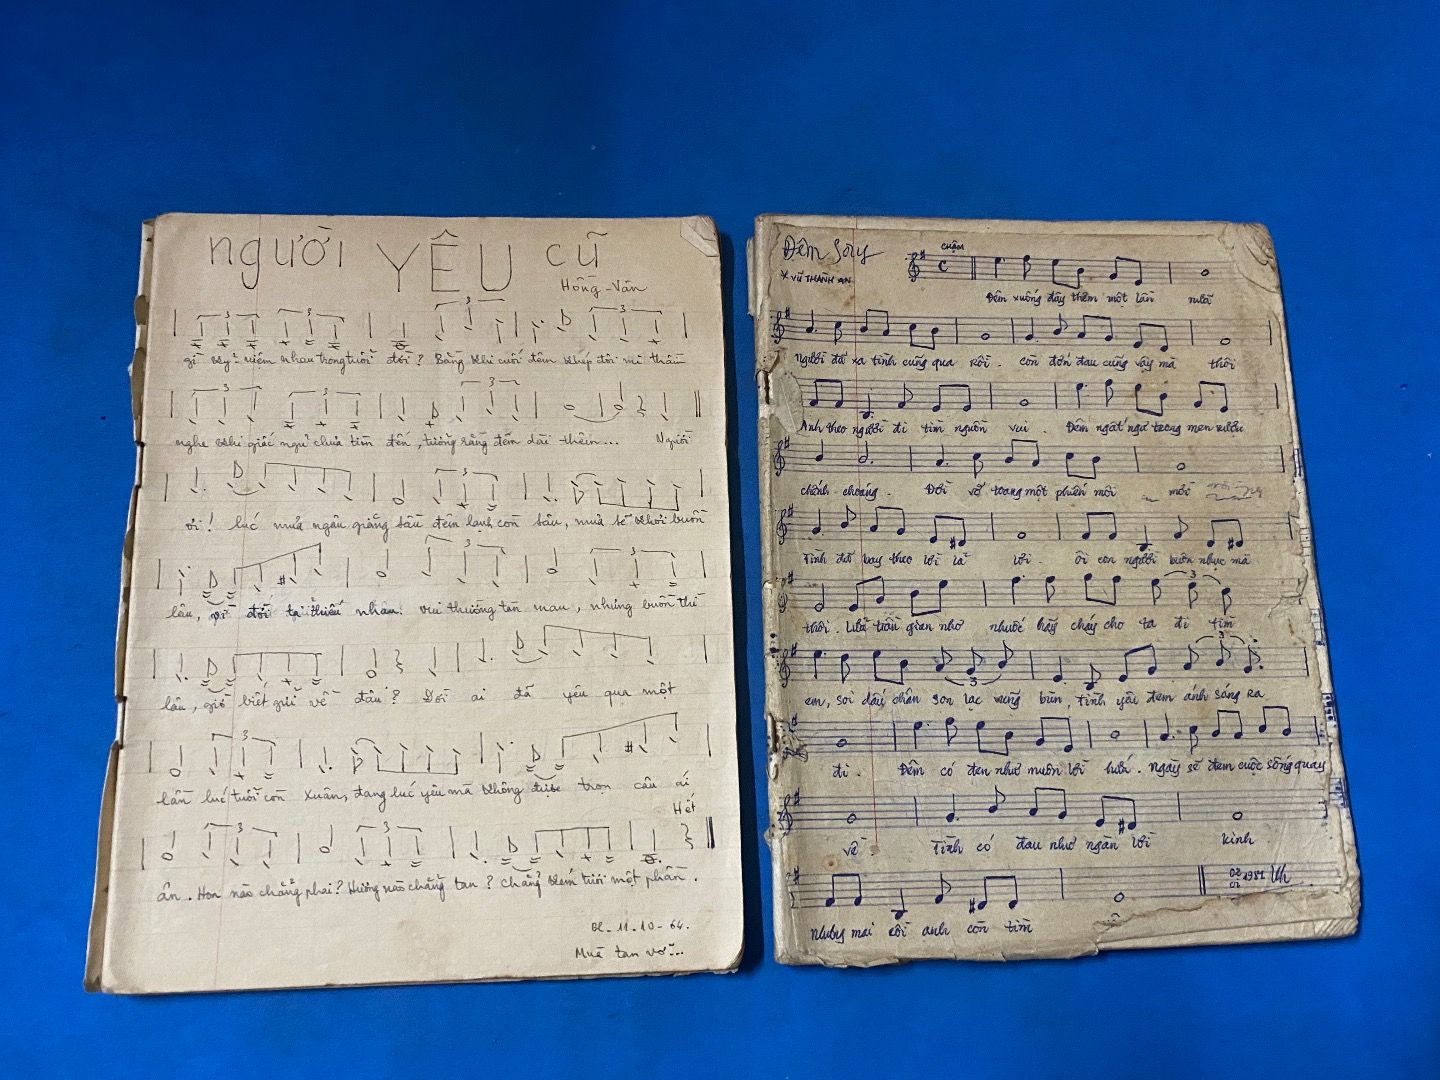 người YÊU cũ
Hồng-Vân
gì kỷ niệm nhau trong tuổi đời? Bằng khi cuối đêm khép đôi mi thầm
nghe khi giấc ngủ chưa tìm đến, tưởng rằng đêm dài thêm... Người
ơi! lúc mưa ngâu giăng sầu đêm lạnh còn sâu, mưa sẽ khơi buồn
lâu, vì đời ta thiếu nhau. vui thường tan mau, nhưng buồn thì
lâu, gió biết gửi về đâu? Đời ai đã yêu qua một
lần lúc tuổi còn xuân, đang lúc yêu mà không được trọn câu ái
Hết
ân. Hoa nào chẳng phai? Hương nào chẳng tan? Chẳng kiếm tươi một phần.
BL. 11-10-64.
Mùa tan vỡ...
Đêm Say
x VŨ THÀNH AN
CHẬM
Đêm xuống đây thêm một lần nữa
Người đã xa tình cũng qua rồi. còn đớn đau cũng vậy mà thôi
Anh theo người đi tìm nguồn vui. Đêm ngất ngư trong men rượu
chếnh choáng. Đời vỡ toang một phiến môi mời
Tình đã bay theo lời lả lơi. ôi con người buồn nhục mà
thôi. Lửa trần gian nhơ nhuốc hãy cháy cho ta đi tìm
em, soi dấu chân son lạc vũng bùn, tình yêu đem ánh sáng ra
đi. Đêm có đen như muôn lời hứa. ngày sẽ đem cuộc sống quay
về. Tình có đau như ngàn lời kinh
nhưng mai rồi anh còn tìm
02 1981
02